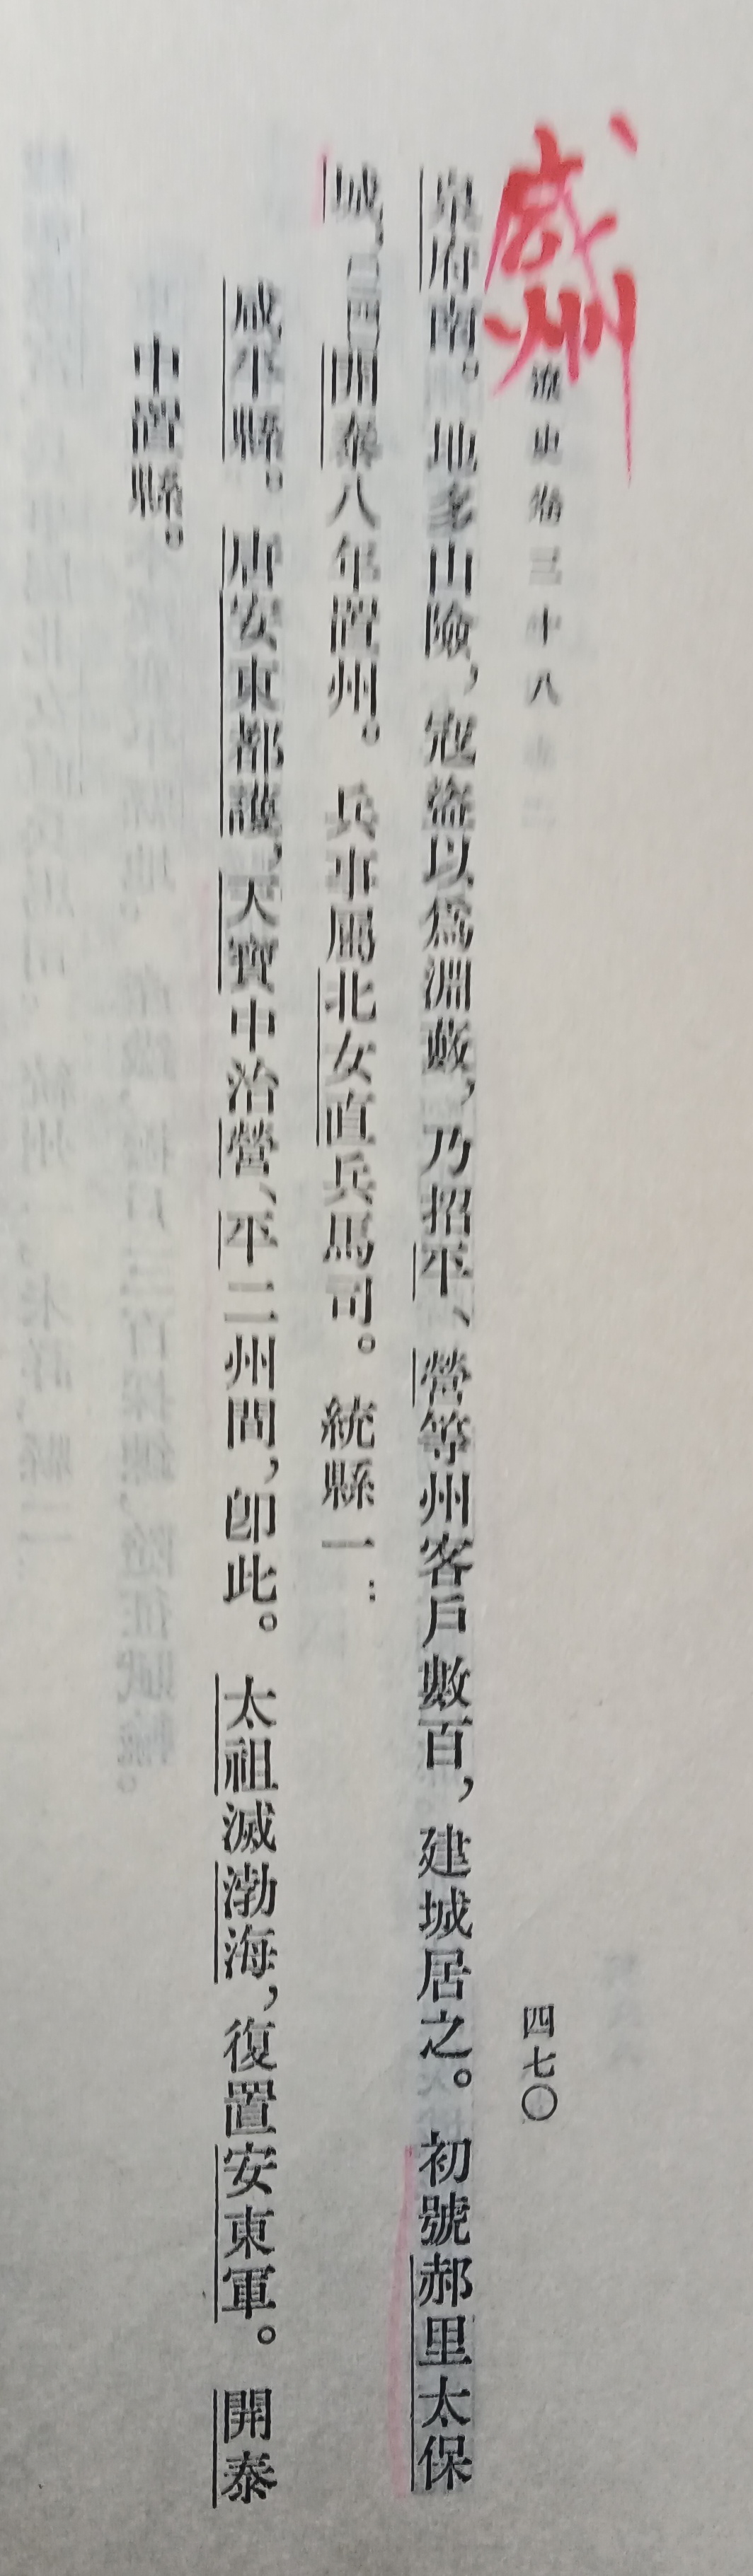 咸州
遼史卷三十八
四七〇
泉府南。地多山險，寇盜以爲淵藪，乃招平、營等州客戶數百，建城居之。初號郝里太保
城，〔二四〕開泰八年置州。兵事屬北女直兵馬司。統縣一：
咸平縣。唐安東都護，天寶中治營、平二州間，卽此。太祖滅渤海，復置安東軍。開泰
中置縣。